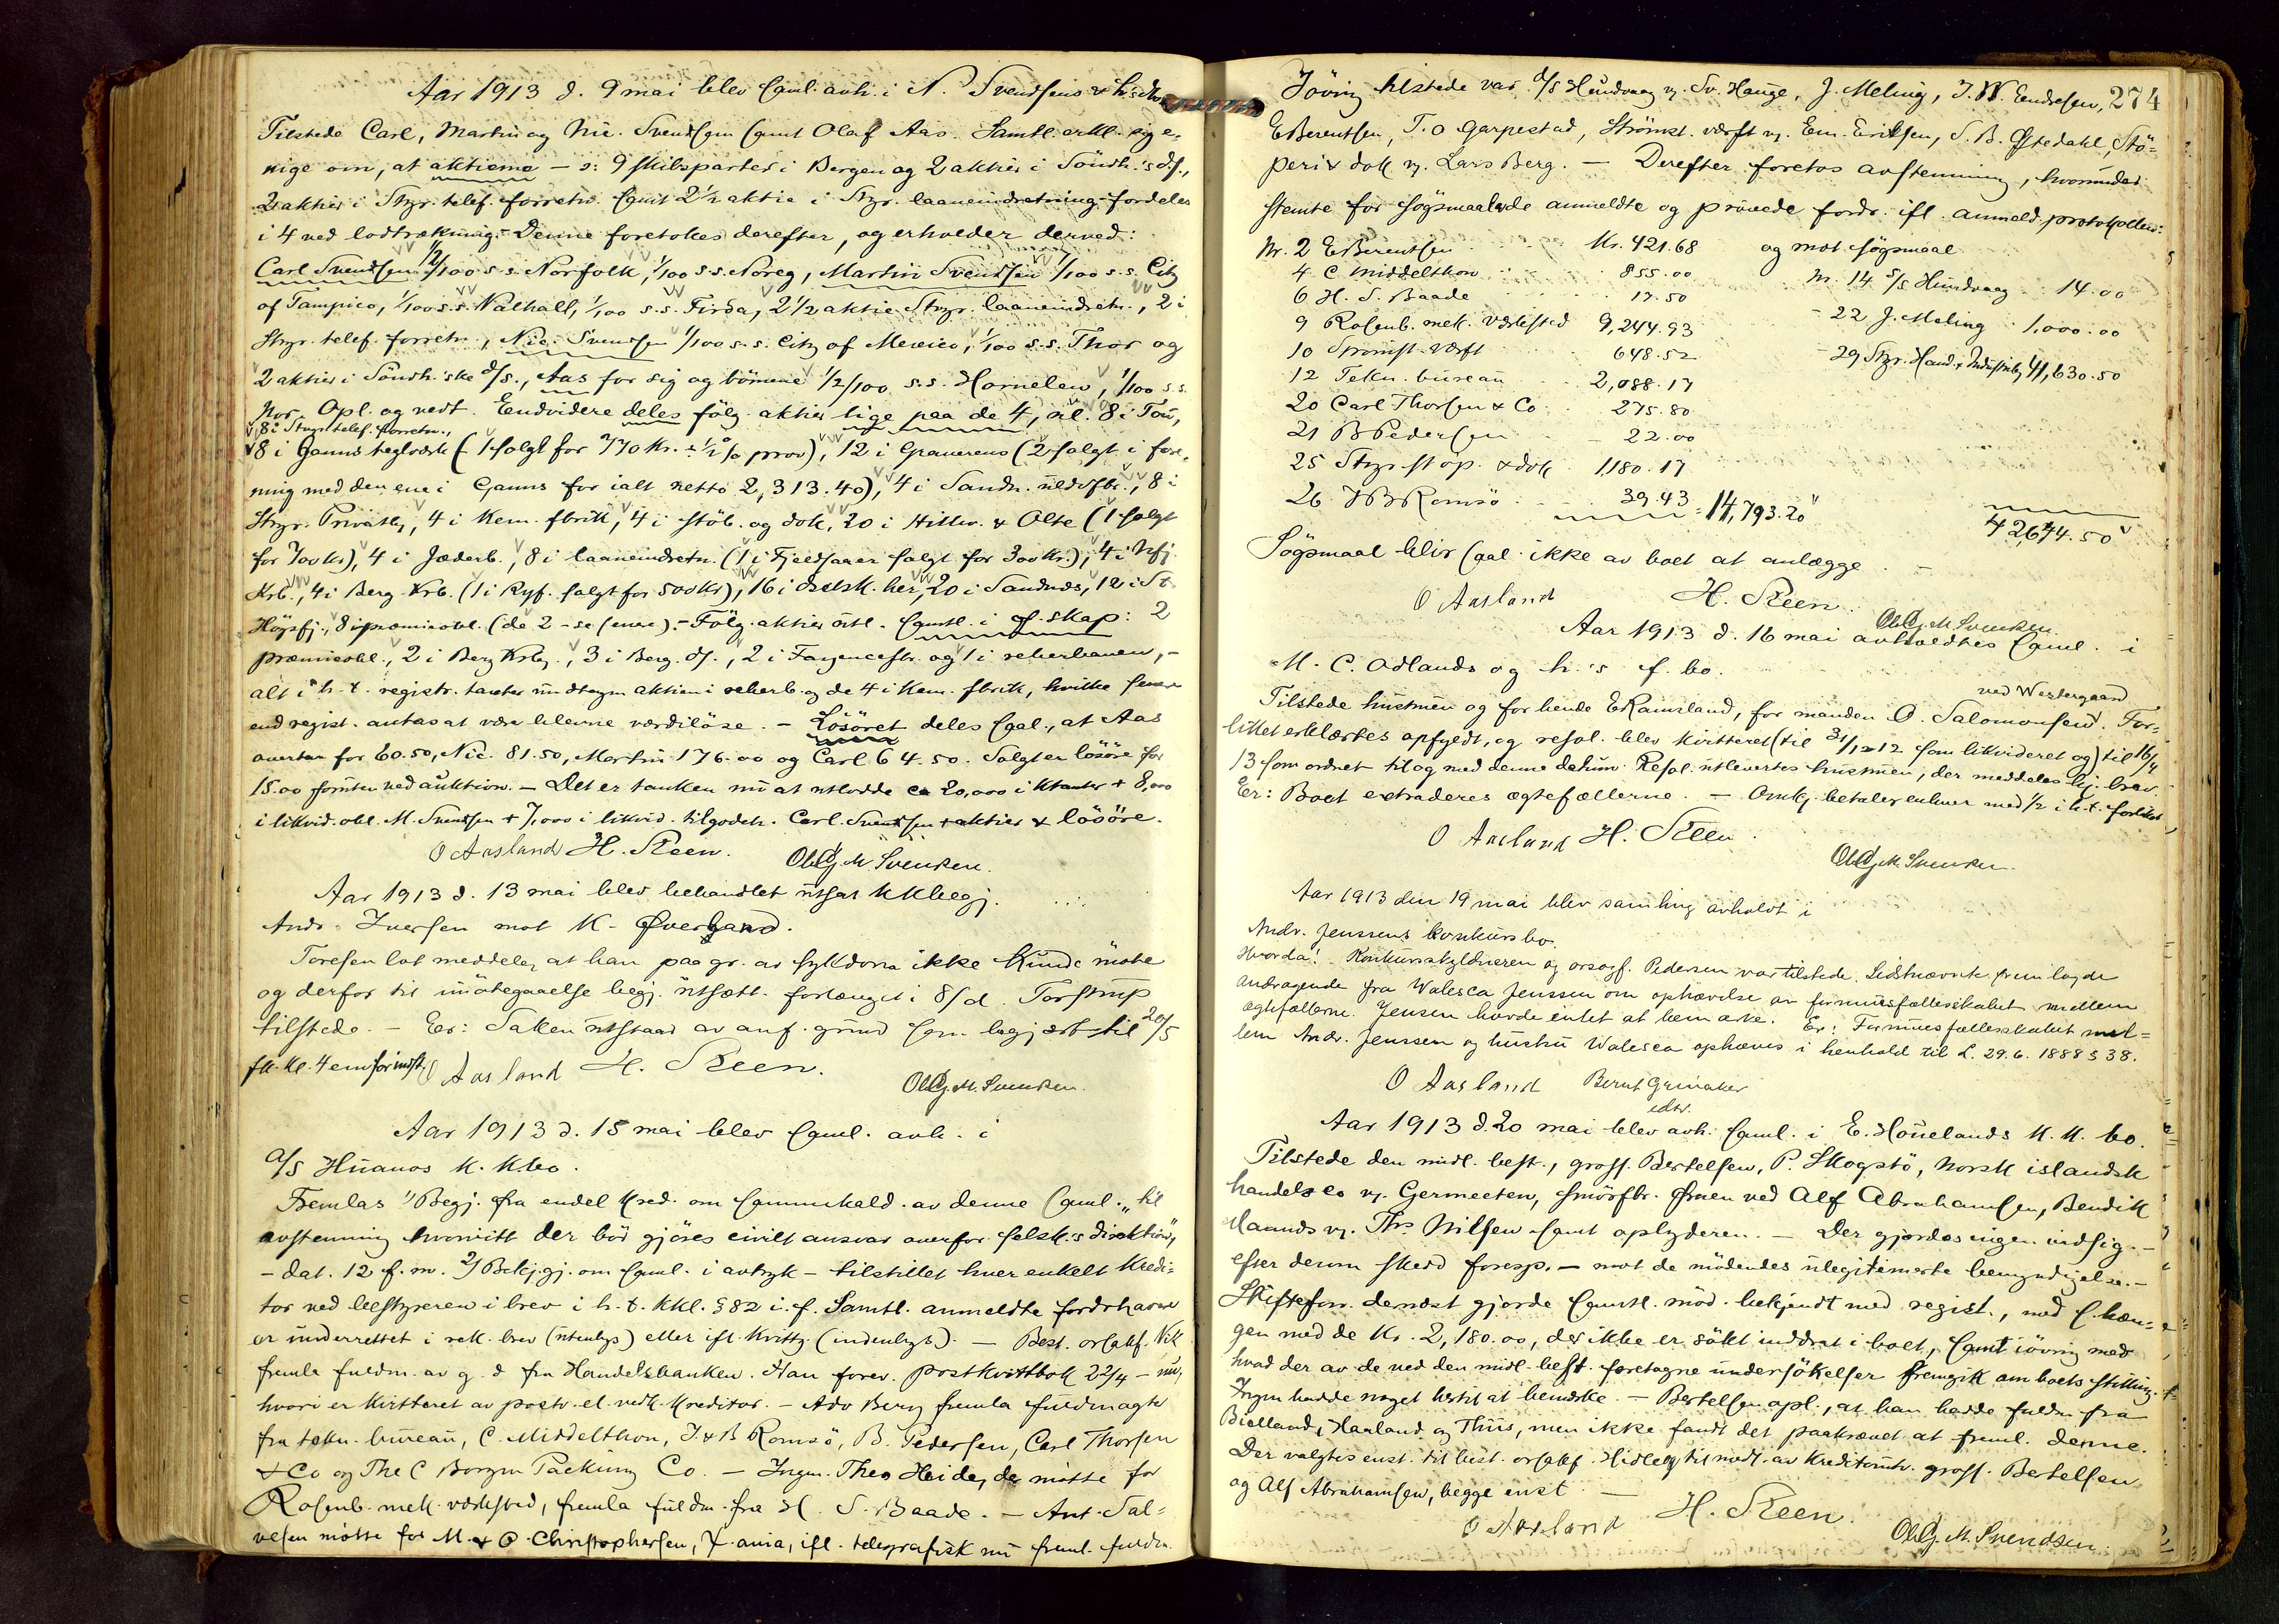 Aar 1913 d. 9 mai blev saml. avh. i N. Svendsens & h.s
Tilstede Carl, Martin og Nic. Svendsen samt Olaf Aas. Samtl. erkl. sig e-
nige om, at aktierne — ɔ: 9 skibsparter i Bergen og 2 aktier i Söndh.'s d/s.,
2 aktier i Stgr. telef. forretn. samt 2 1/2 aktie i Stgr. laaneindretning fordeles
i 4 ved lodtrækning. — Denne foretokes derefter, og erholder derved:
Carl Svendsen 1/100 s.s. Norfolk, 1/100 s.s. Noreg, Martin Svendsen 1/100 s.s. City
of Tampico, 1/100 s.s. Valhall, 1/100 s.s. Firda, 2 1/2 aktie Stgr. laaneindretn., 2 i
Stgr. telef. forretn., Nic. Svendsen 1/100 s.s. City of Mexico, 1/100 s.s. Thor og
2 aktier i Söndh.'ske d/s., Aas for sig og börnene 1/2/100 s.s. Hornelen, 1/100 s.s.
Nor. Opl. og vedt. Endvidere deles fölg. aktier lige paa de 4, nl. 8 i Tou,
8 i Stgr. telef. forretn.,
8 i Ganns teglverk (1 solgt for 770 Kr. ÷ 1/2 % prov), 12 i Graverens (2 solgt i fore-
ning med den ene i Ganns for ialt netto 2,313.40), 4 i Sandn. uldvfbr., 8 i
Stgr. Privatbk, 4 i Kem. fbrik, 4 i stöb. og dok, 20 i Hillev. & Olte (1 solgt
for 700 Kr), 4 i Jæderb., 8 i laaneindretn. (1 i Fjeldsaaen solgt for 300 Kr.), 4 i Nfj.
Krb., 4 i Berg. Krb. (1 i Ryf. solgt for 500 Kr), 16 i dselsk. her, 20 i Sandnds, 12 i St
Högsfj., 8 i præmieobl. (de 2 - se senere). — Fölg. aktier utl. samtl. i f.skap: 2
præmieobl., 2 i Berg Krbk., 3 i Berg. d/s., 2 i Fayencefbr. og 1 i reberbanen, —
alt i h. t. registr. takster undtagen aktien i reberb. og de 4 i Kem. fbrik, hvilke senere
end regist. antas at være blevne værdilöse. — Lösöret deles saal., at Aas
overtar for 60.50, Nic. 81.50, Martin 176.00 og Carl 64.50. Solgt er lösöre for
15.00 foruten ved auktion. — Det er tanken nu at utlodde ca 20,000 i Ktanter + 8,000
i likvid. obl. M. Svendsen + 7,000 i likvid. tilgodeh. Carl Svendsen + aktier & lösöre.
O Aasland H. Steen. Ol. G. M. Svendsen.
Aar 1913 d. 13 mai blev behandlet utsat KKbegj.
Andr. Iversen mot K. Øverland.
Toresen lot meddele, at han paa gr. av sykdom ikke kunde möte
og derfor til imötegaaelse begj. utsætt. forlænget i 8/d. Torstrup
tilstede. — Er: Saken utstaar av anf. grund som begjært til 20/5
fk. kl. 4 em for indst. O Aasland H. Steen.
Ol. G. M. Svendsen.
Aar 1913 d. 15 mai blev saml. avh. i
A/S Huanos K. K.bo.
Fremlas 1/ Begj. fra endel kred. om sammenkald. av denne saml. „til
avstemning hvorvitt der bör gjöres civilt ansvar overfor selsk.'s direktiön,
— dat. 12 f.m. 2/ Bekj.gj. om saml. i avtryk — tilstillet hver enkelt kredi-
tor ved bestyreren i brev i h. t. kkl. § 82 i.f. Samtl. anmeldte fordrhavere
er underrettet i rek. brev (utenbys) eller ifl. kvittg. (indenbys). — Best. orsakf. Vik
fremla fuldm. av g. d. fra Handelsbanken. Han forev. postkvittbok 22/4 — nu,
hvori er kvitteret av postv. el. vedk. kreditor. — Adv Berg fremla fuldmagt
fra tekn. bureau, C. Middelthon, I & B Romsö, B. Pedersen, Carl Thorsen
& Co og The C Borgen Packing Co. — Ingen. Theo Heide, der mötte for
Rosenb. mek. værksted, fremla fuldm. fra H. S. Baade. — Ant. Sal-
vesen mötte for M. & O. Christophersen, X.ania, ifl. telegrafisk nu freml. fuldm.
274
Iövrig tilstede var A/S Hundvaag v. Sv. Hauge, J. Meling, I. W. Endresen,
E Berentsen, T. O Garpestad, Strömst. værft v. Em. Eriksen, S. B. Østedahl, Stö-
peri & dok v. Lars Berg. — Derefter foretos avstemning, hvorunder
stemte for sögsmaal de anmeldte og prövede fordr. ifl. anmeld. protokollen:
Nr. 2 E Berentsen Kr. 421.68 og mot sögsmaal
4 C Middelthon 855.00 Nr. 14 A/S Hundvaag 14.00
6 H. S. Baade 17.50
9 Rosenb. mek. Værksted 9,244.93 - 22 J. Meling 1,000.00
10 Strömst. Værft 648.52 - 29 Stgr. Hand. & Industribk 41,630.50
12 Tekn. bureau 2,088.17
20 Carl Thorsen & Co. 275.80
21 B Pedersen 22.00
25 Stgr stöp. & dok 1180.17
26 I B Romsö 39.43 = 14,793.20 42,644.50
Sögsmaal blir saal. ikke av boet at anlægge. —
O Aasland H. Steen. Ol. G. M. Svendsen
Aar 1913 d. 16 mai avholdtes saml. i
M. C. Odlands og h.'s f. bo.
Tilstede hustruen og for hende E Ramsland, for manden O. Salomonsen ved Westergaard. For-
liket erklærtes opfyldt, og resol. blev kvitteret (til 31/12 12 som likvideret og) til 16/4
13 som ordnet til og med denne datum. Resol. utlevertes hustruen, der meddeles bj. brev.
Er: Boet extraderes ægtefællerne. — Omk. betaler enhver med 1/2 i h.t. forliket
O Aasland H. Steen.
Ol. G. M. Svendsen.
Aar 1913 den 19 mai blev samling avholdt i
Andr. Jenssens konkursbo.
Hvorda: Konkursskyldneren og orsagf. Pedersen var tilstede. Sidstnævnte fremlagde
andragende fra Walesca Jenssen om ophævelse av formuesfællesskabet mellem
ægtefællerne. Jensen havde intet at bemærke. Er: Formuesfællesskabet mel-
lem Andr. Jenssen og hustru Walesca ophæves i henhold til L. 29.6. 1888 § 38.
O Aasland Bernt Grinaker
edsv.
Aar 1913 d. 20 mai blev avh. saml. i E. Hövelands K. K. bo.
Tilstede den midl. best., gross. Bertelsen, P. Skogstö, Norsk islandsk
handels co v. Germeeten, smörfbr. Ørnen ved Alf Abrahamsen, Bendik
Maands v. Ths Nilsen samt oplyderen. — Der gjordes ingen indsig. —
efter derom skedd foresp. — mot de mödendes ulegitimerte bemyndigelse. —
Skifteforv. dernæst gjorde samtl. möd. bekjendt med regist., med s.hæn-
gen med de Kr. 2,180.00, der ikke er sökt inddrat i boet, samt iövrig med
hvad der av de ved den midl. best. foretagne undersökelser fremgik om boets stilling.
Ingen hadde noget hertil at bemerke. — Bertelsen opl., at han hadde fuldm fra
Bielland, Haaland og Thiis, men ikke fandt det paakrævet at freml. denne.
Der valgtes enst. til best. orsakf. Hidle og til medl. av Kreditorutv. gross. Bertelsen
og Alf Abrahamsen, begge enst. —
O Aasland H. Steen.
Ol. G. M. Svendsen.